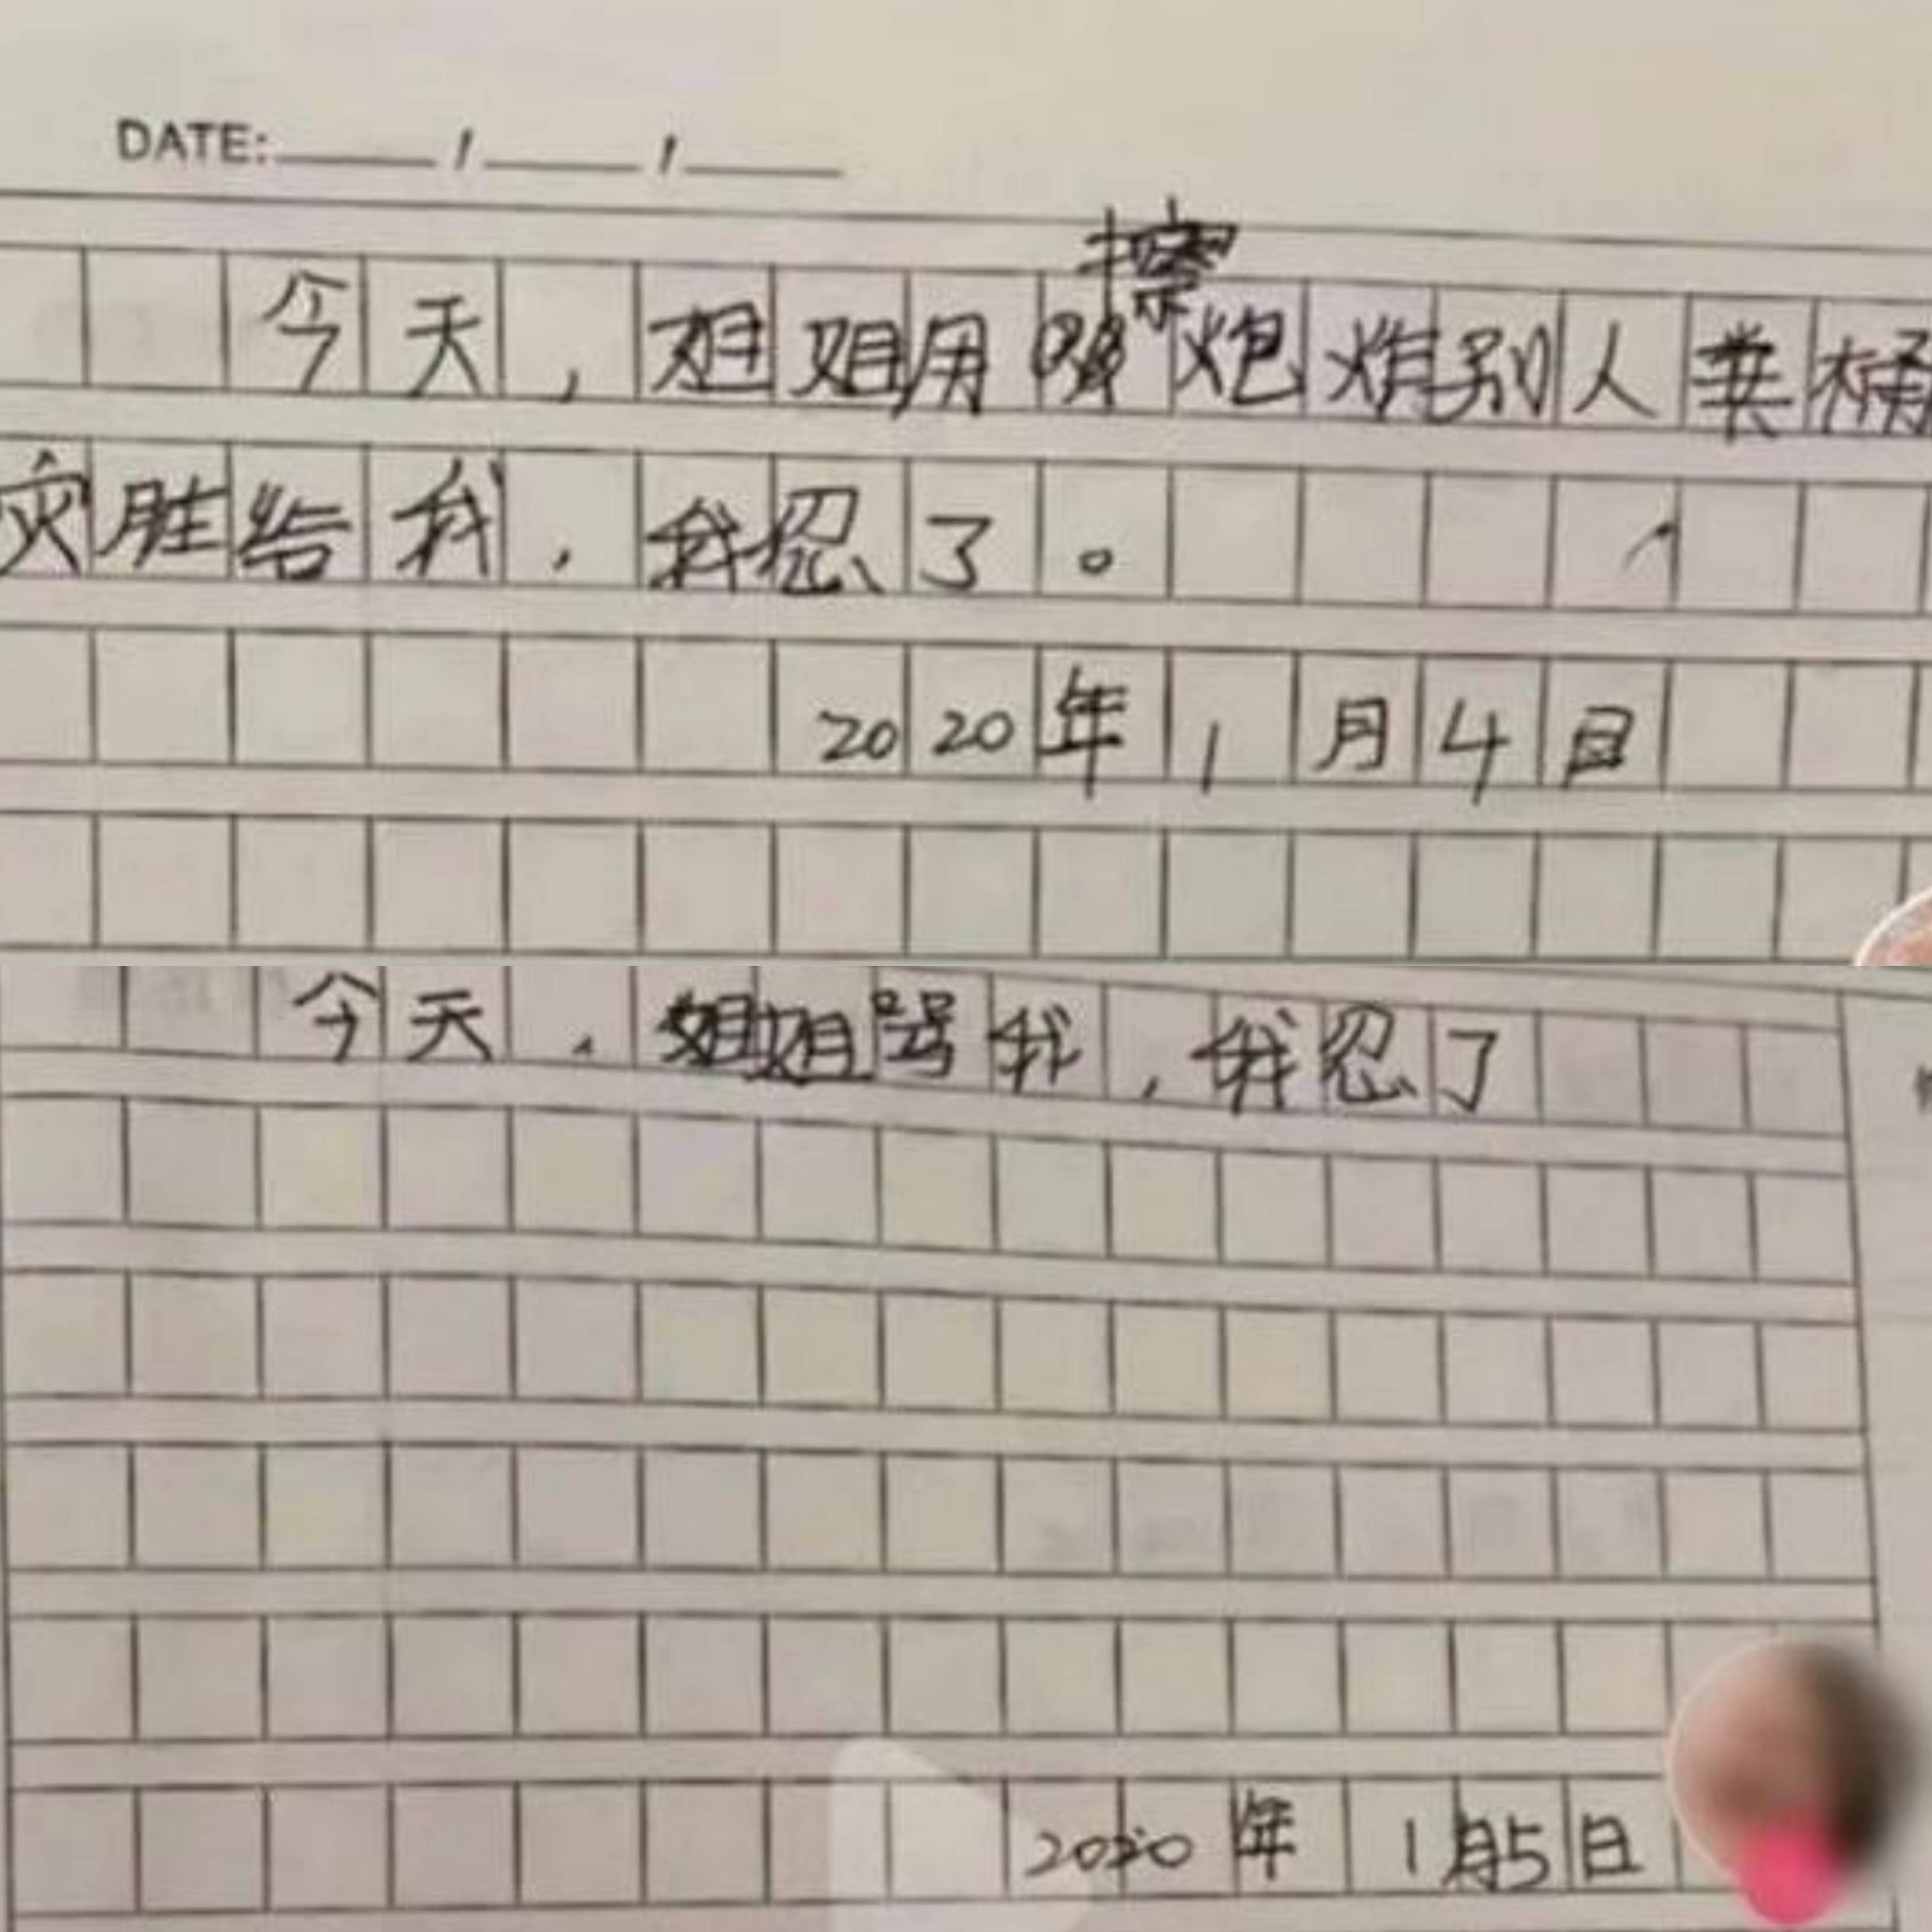 DATE:____/____/____
擦
今天，姐姐用炮炸别人粪桶
灾脏给我，我忍了。
2020年1月4日
今天，姐姐骂我，我忍了
2020年1月5日